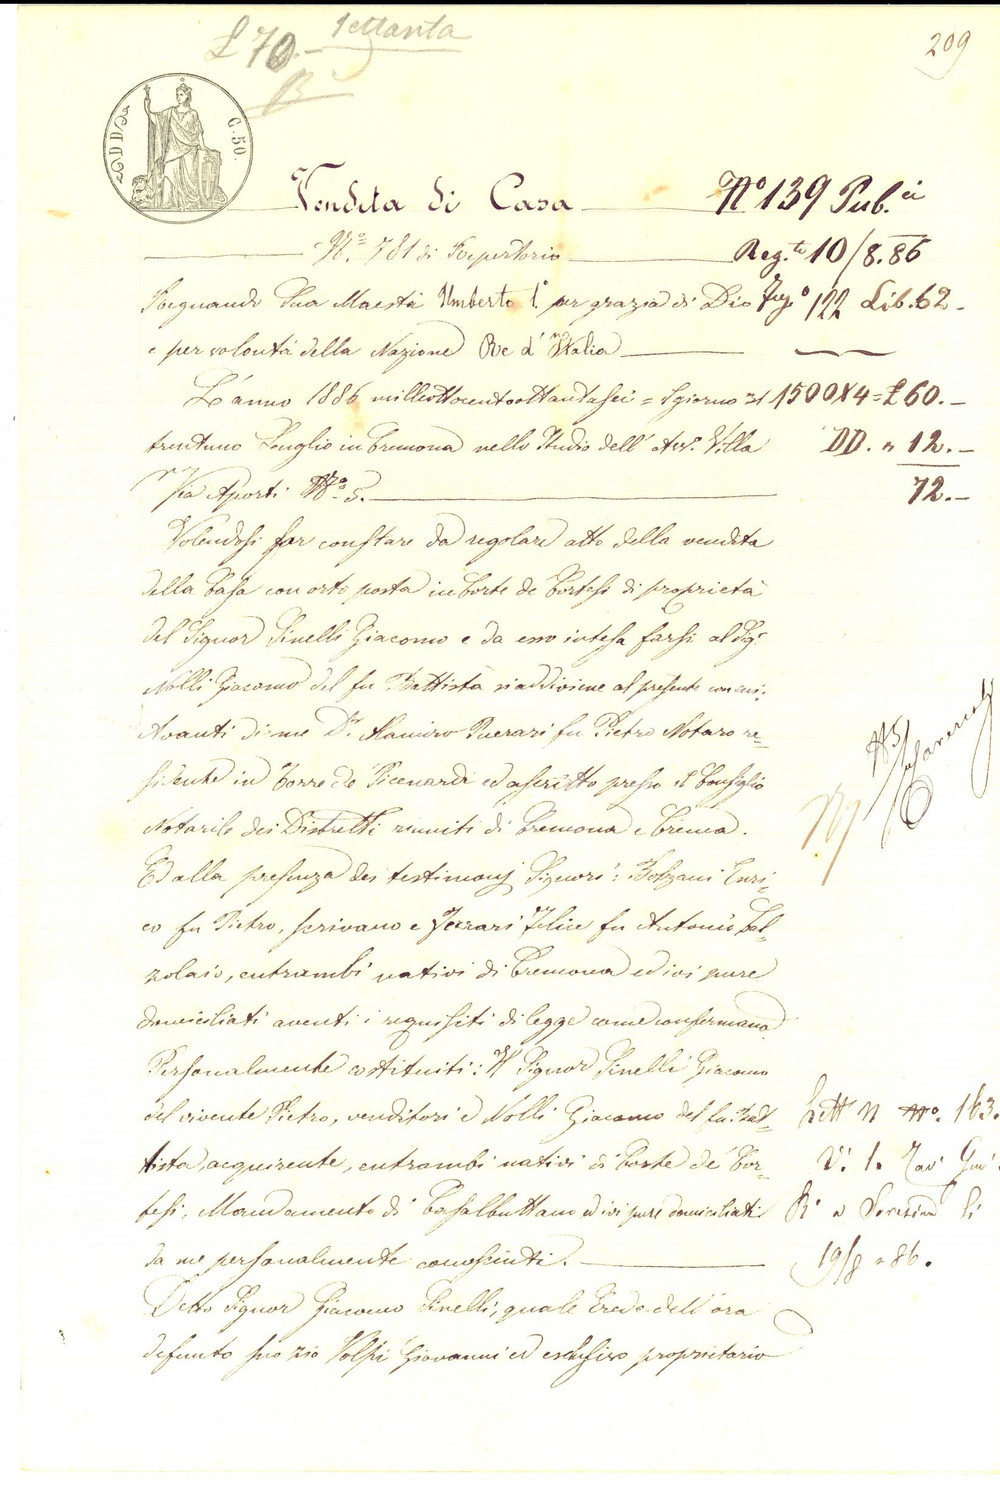 209
£ 70.- settanta
C. 50.
Vendita di Casa
N.° 139 Pub.ci
N.° 781 di Repertorio
Reg.te 10/8.86
Regnando Sua Maestà Umberto 1.° per grazia di Dio
Fog.° 122 Lib. 62 -
e per volontà della Nazione Re d'Italia
L'anno 1886 milleottocentoottantasei = Il giorno 31
1500 X 4 = £ 60.-
trentuno Luglio in Cremona nello Studio dell' Avv. Villa
DD. " 12.-
Via Aporti N.° 5.
72.-
Volendosi far constare da regolare atto della vendita
della Casa con orto posta in Corte de Cortesi di proprietà
del Signor Pinelli Giacomo e da esso intesa farsi al Sig.r
Nolli Giacomo del fu Battista si addiviene al presente con cui.
Avanti di me D.r Ramiro Puerari fu Pietro Notaro re-
sidente in Torre de Picenardi ed ascritto presso il Consiglio
Notarile dei Distretti riuniti di Cremona e Crema.
Ed alla presenza dei testimonj Signori: Bolzani Enri-
co fu Pietro, scrivano e Ferrari Felice fu Antonio Cal-
zolaio, entrambi nativi di Cremona ed ivi pure
domiciliati aventi i requisiti di legge come confermano
Personalmente costituiti: Il Signor Pinelli Giacomo
del vivente Pietro, venditore e Nolli Giacomo del fu Bat-
tista, acquirente, entrambi nativi di Corte de' Cor-
tesi, Mandamento di Casalbuttano ed ivi pure domiciliati
da me personalmente conosciuti.
Lett N N.° 163.
19/8 = 86.
Detto Signor Giacomo Pinelli, quale Erede dell' ora
defunto suo zio Volpi Giovanni ed esclusivo proprietario